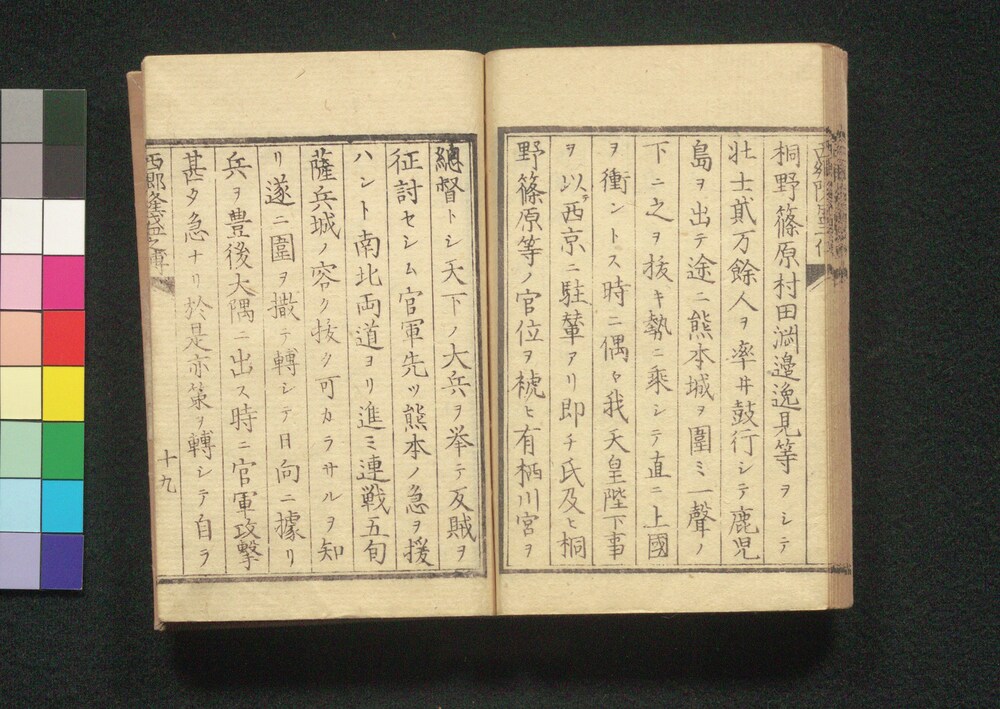 桐野篠原村田淵邉逸見等ヲシテ
壮士貳万餘人ヲ率ヰ鼓行シテ鹿児
島ヲ出テ途ニ熊本城ヲ圍ミ一聲ノ
下ニ之ヲ抜キ勢ニ乘シテ直ニ上國
ヲ衝ントス時ニ偶々我天皇陛下事
ヲ以テ西京ニ駐輦アリ即チ氏及ヒ桐
野篠原等ノ官位ヲ褫ヒ有栖川宮ヲ
總督トシ天下ノ大兵ヲ举テ反賊ヲ
征討セシム官軍先ツ熊本ノ急ヲ援
ハント南北両道ヨリ進ミ連戦五旬
薩兵城ノ容ク抜ク可カラサルヲ知
リ遂ニ圍ヲ撒テ轉シテ日向ニ據リ
兵ヲ豊後大隅ニ出ス時ニ官軍攻撃
甚タ急ナリ於是亦策ヲ轉シテ自ラ
西郷隆盛之傳
十九